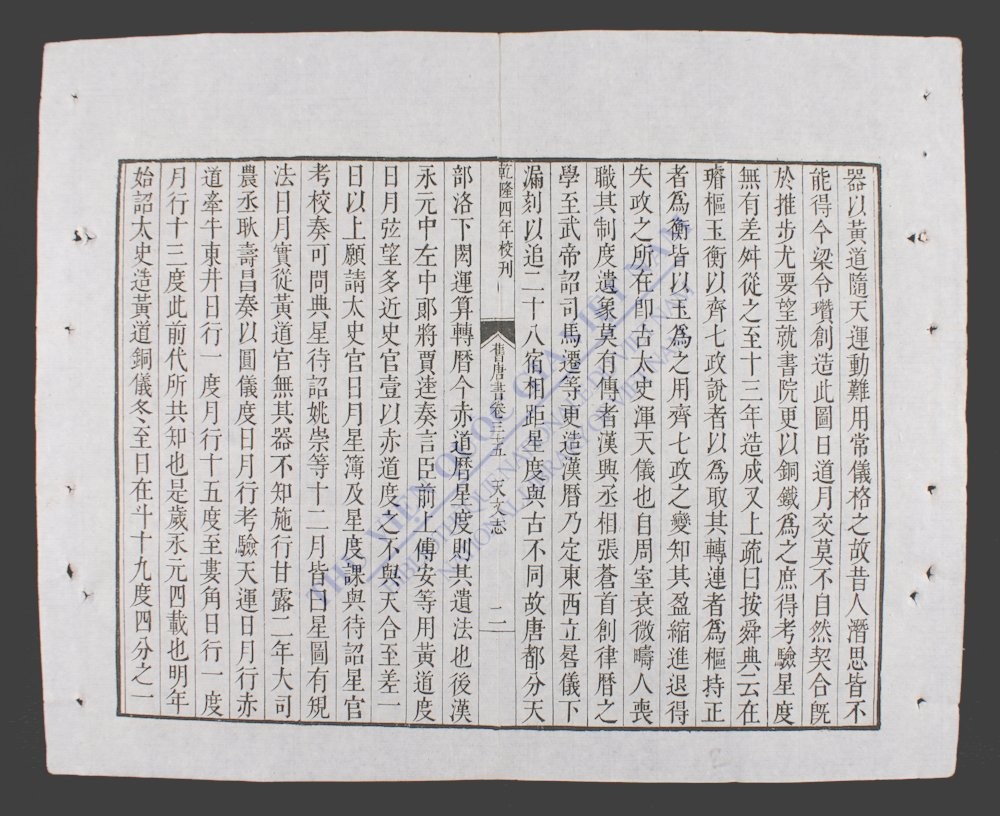 器以黃道隨天運動難用常儀格之故昔人潛思皆不
能得今梁令瓚創造此圖日道月交莫不自然契合旣
於推步尤要望就書院更以銅鐵爲之庶得考驗星度
無有差舛從之至十三年造成又上疏曰按舜典云在
璿樞玉衡以齊七政說者以爲取其轉連者爲樞持正
者爲衡皆以玉爲之用齊七政之變知其盈縮進退得
失政之所在卽古太史渾天儀也自周室衰微疇人喪
職其制度遺象莫有傳者漢興丞相張蒼首創律曆之
學至武帝詔司馬遷等更造漢曆乃定東西立晷儀下
漏刻以追二十八宿相距星度與古不同故唐都分天
乾隆四年校刊
舊唐書卷三十五 天文志 二
部洛下閎運算轉曆今赤道曆星度則其遺法也後漢
永元中左中郞將賈逵奏言臣前上傅安等用黃道度
日月弦望多近史官壹以赤道度之不與天合至差一
日以上願請太史官日月星簿及星度課與待詔星官
考校奏可問典星待詔姚崇等十二月皆曰星圖有規
法日月實從黃道官無其器不知施行甘露二年大司
農丞耿壽昌奏以圓儀度日月行考驗天運日月行赤
道牽牛東井日行一度月行十五度至婁角日行一度
月行十三度此前代所共知也是歲永元四載也明年
始詔太史造黃道銅儀冬至日在斗十九度四分之一
THƯ VIỆN QUỐC GIA VIỆT NAM
NATIONAL LIBRARY OF VIETNAM